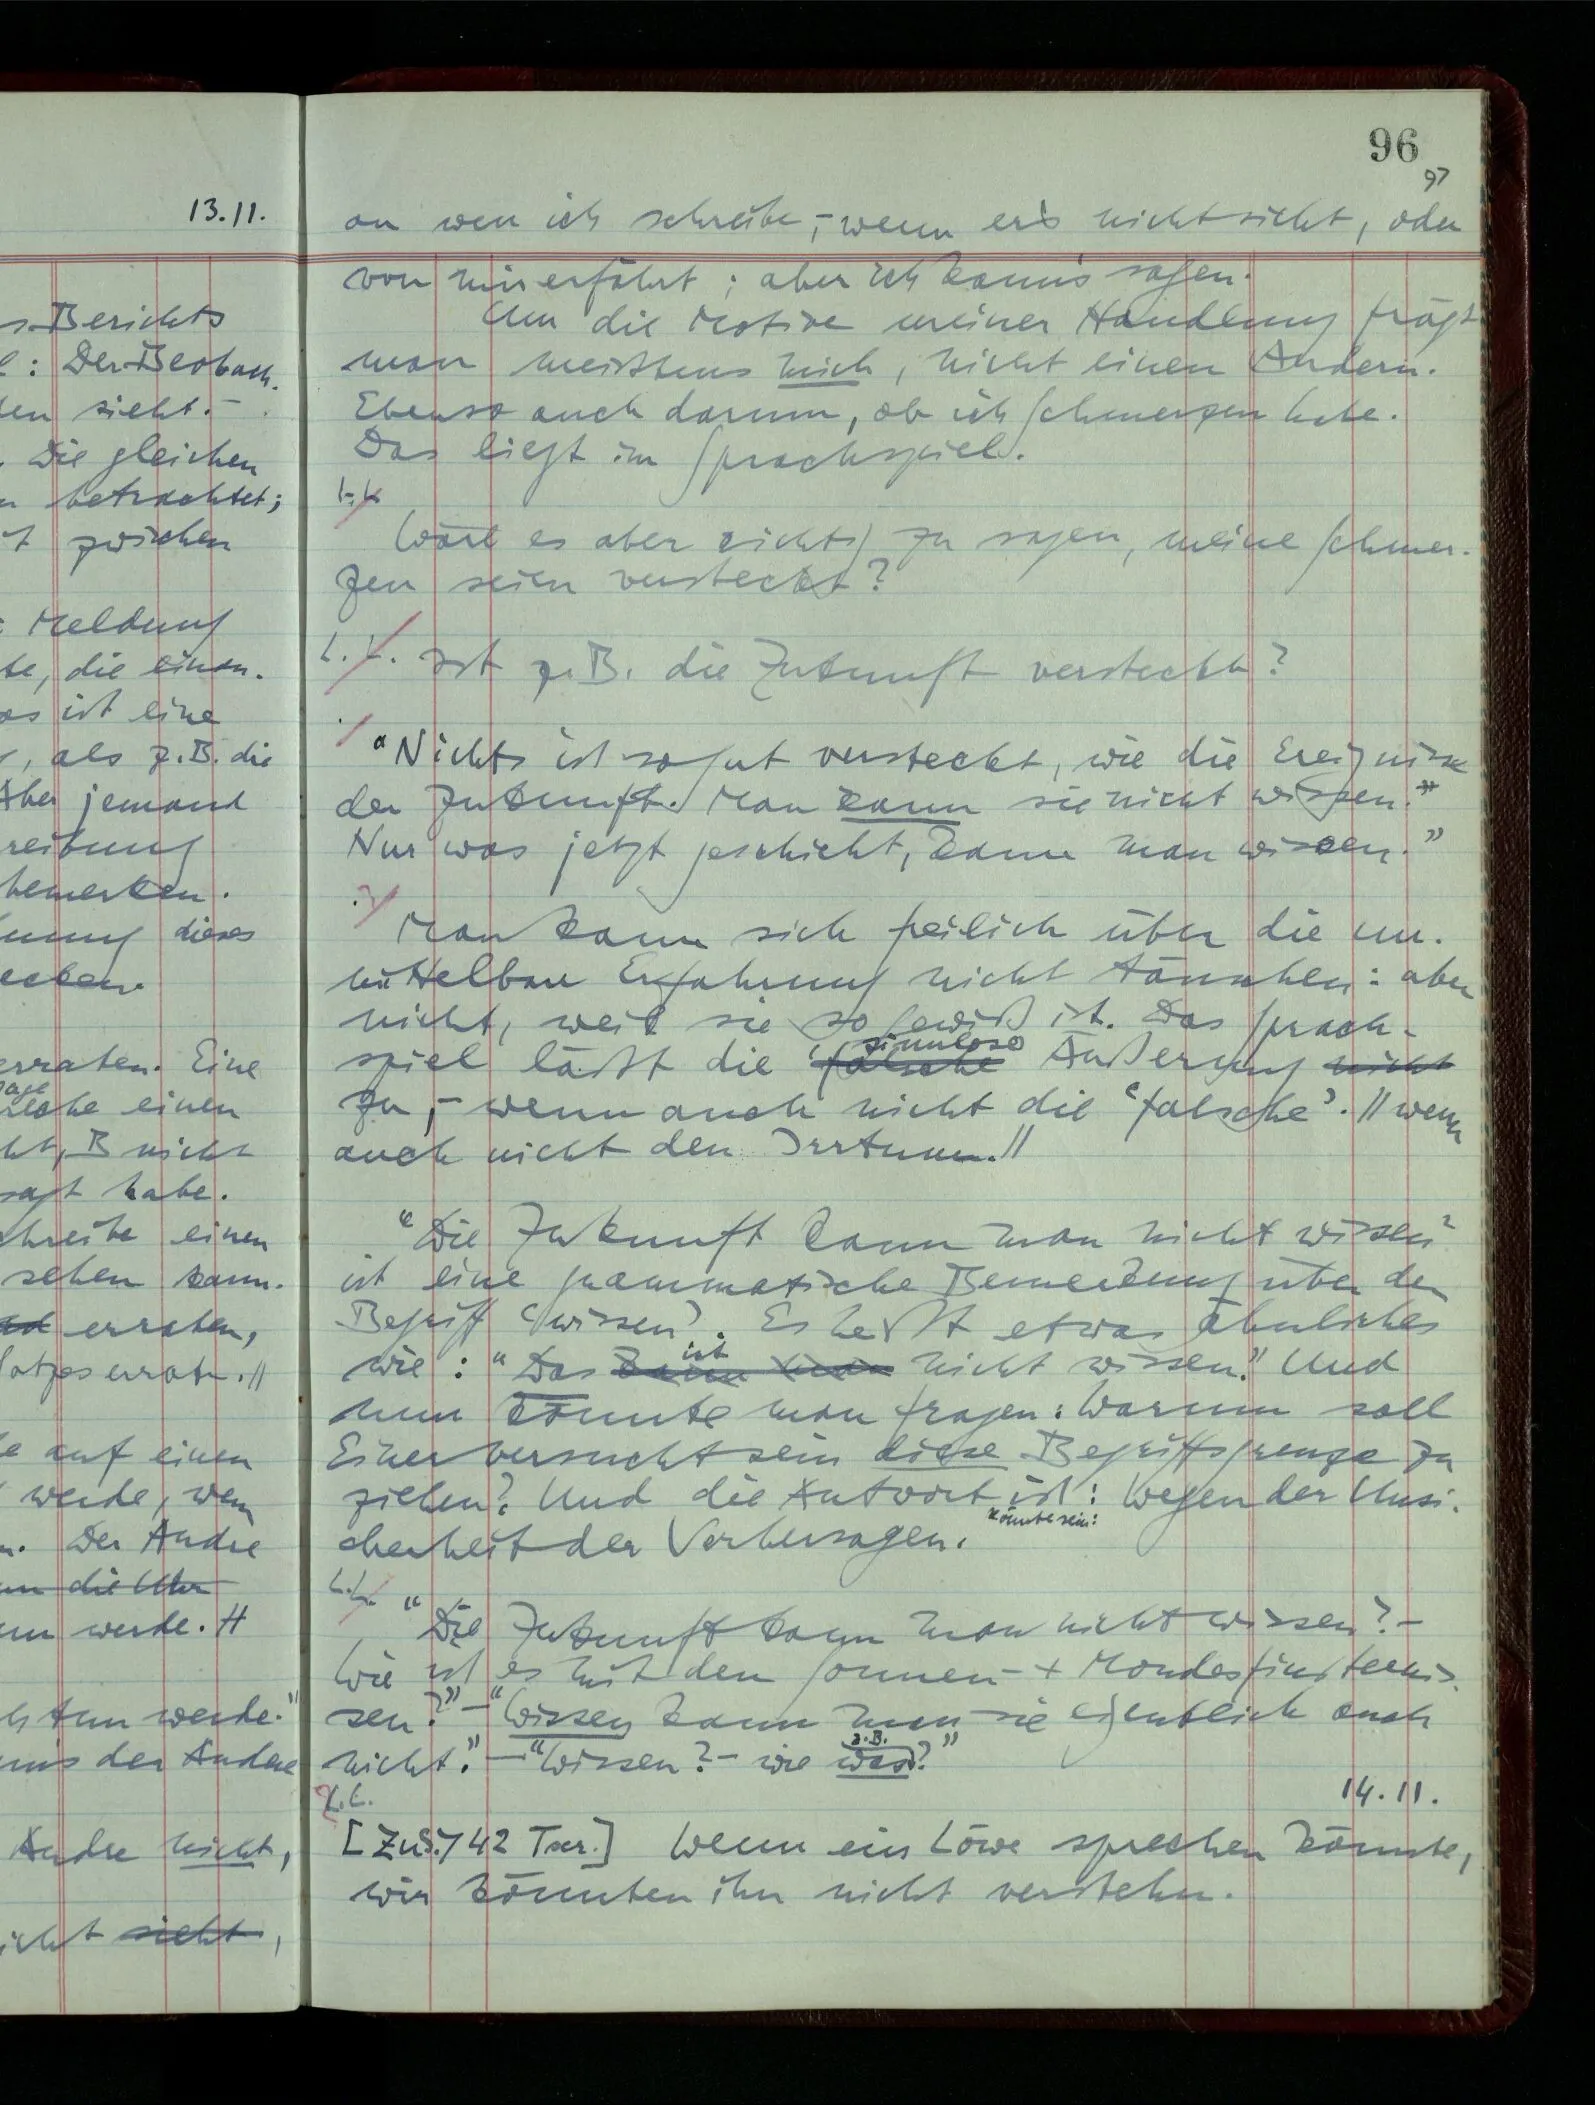 13.11.
s Berichts
: Der Beobach-
den sieht. –
Die gleichen
betrachtet;
zwischen
: Meldung
te, die einan-
as ist eine
, als z.B. die
Aber jemand
reibung
bemerken.
nung dieses
ecken.
erraten. Eine
age
Sache einen
ht, B nicht
sagt habe.
chreibe einen
sehen kann.
erraten,
Satzes errate. //
e auf einen
werde, wenn
n. Der Andre
die Uhr
nn werde. //
ich tun werde."
der Andre
Andre nicht,
icht sieht,
96
97
an wen ich schreibe, – wenn er's nicht sieht, oder
von mir erfährt; aber ich kann's sagen.
Um die Motive meiner Handlung frägt
man meistens mich, nicht einen Andern.
Ebenso auch darum, ob ich Schmerzen habe.
Das liegt im Sprachspiel.
Wäre es aber richtig zu sagen, meine Schmer-
zen seien versteckt?
Ist z.B. die Zukunft versteckt?
"Nichts ist so gut versteckt, wie die Ereignisse
der Zukunft. Man kann sie nicht wissen."
Nur was jetzt geschieht, kann man wissen."
Man kann sich freilich über die un-
mittelbare Erfahrung nicht täuschen: aber
nicht, weil sie so gewiß ist. Das Sprach-
sinnlose
spiel läßt die 'falsche Äußerung nicht
zu, – wenn auch nicht die 'falsche'. // wenn
auch nicht den Irrtum. //
"Die Zukunft kann man nicht wissen"
ist eine grammatische Bemerkung über den
Begriff 'wissen'. Es heißt etwas ähnliches
ist
wie: "Das kann man nicht wissen." Und
nun könnte man fragen: Warum soll
Einer versucht sein diese Begriffsgrenze zu
ziehen? Und die Antwort ist: Wegen der Unsi-
könnte sein:
cherheit der Vorhersagen.
"Die Zukunft kann man nicht wissen? –
Wie ist es mit den Sonnen- + Mondesfinsternis-
sen?" – "Wissen kann man sie eigentlich auch
z.B.
nicht." – "Wissen? – wie was?"
14.11.
[Zu S. 742 Tscr.] Wenn ein Löwe sprechen könnte,
wir könnten ihn nicht verstehn.